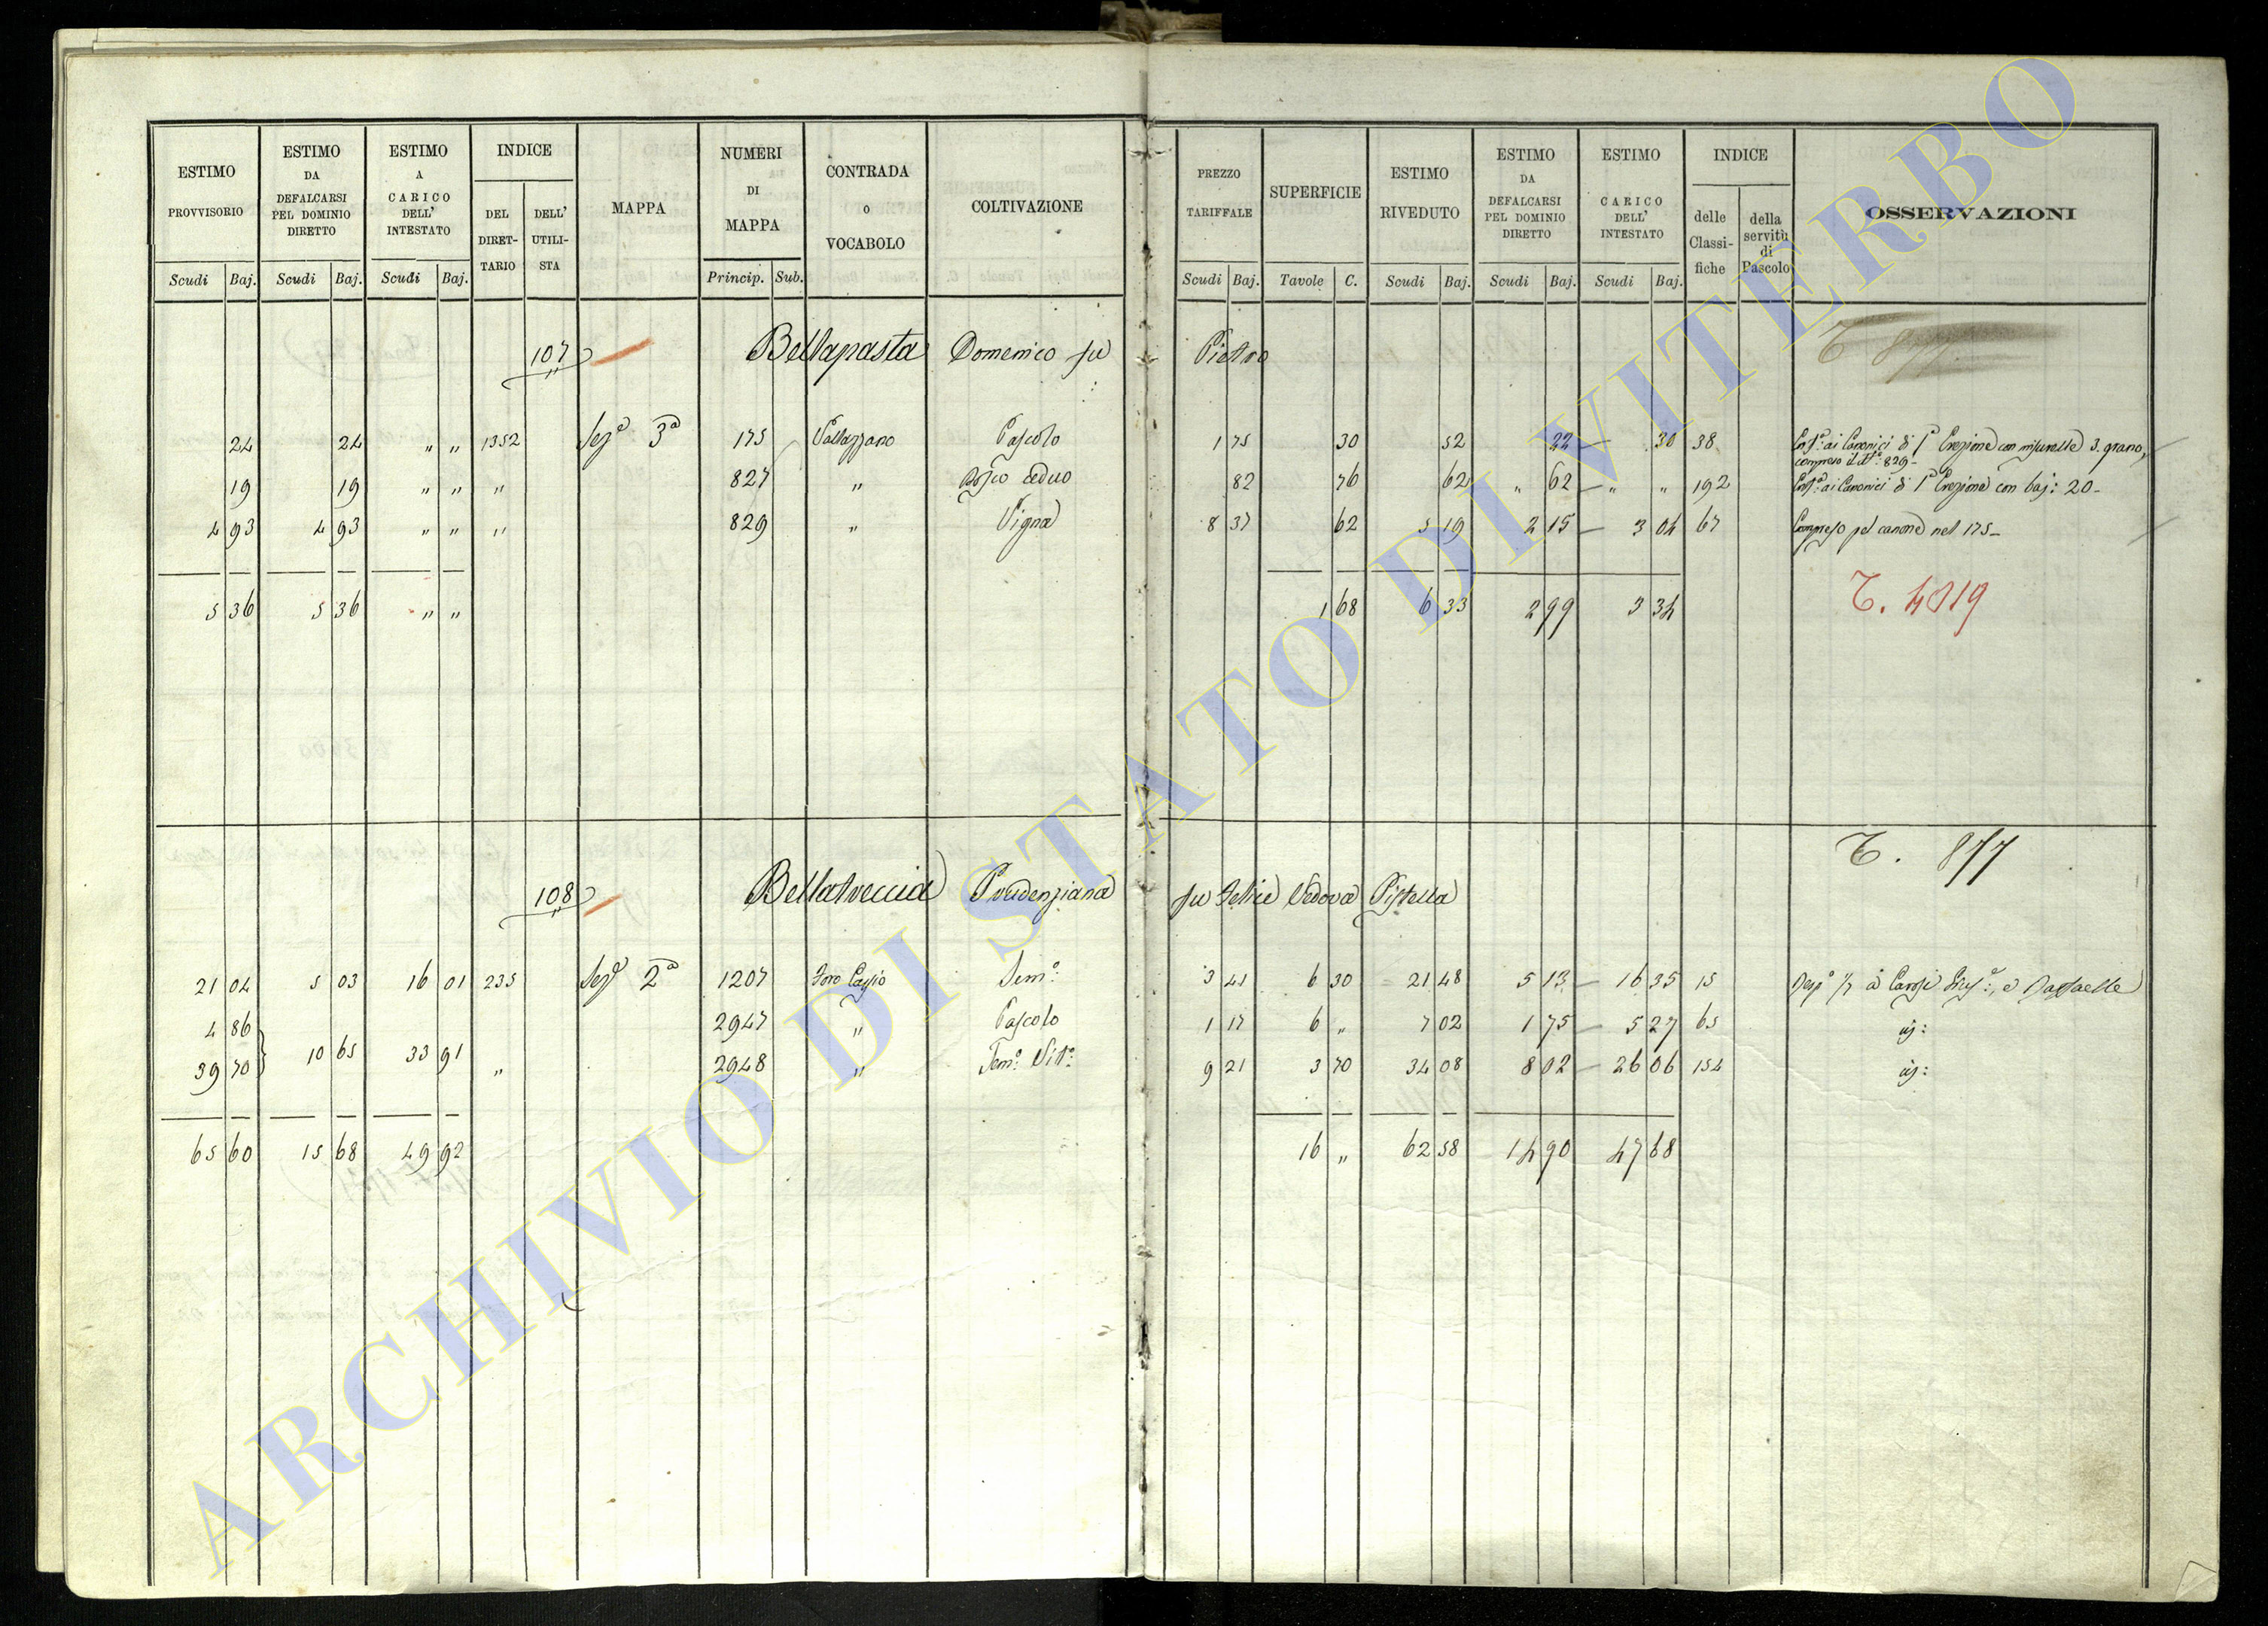 ESTIMO PROVVISORIO | ESTIMO DA DEFALCARSI PEL DOMINIO DIRETTO | ESTIMO A CARICO DELL' INTESTATO | INDICE | MAPPA | NUMERI DI MAPPA | CONTRADA O VOCABOLO | COLTIVAZIONE | PREZZO TARIFFALE | SUPERFICIE | ESTIMO RIVEDUTO | ESTIMO DA DEFALCARSI PEL DOMINIO DIRETTO | ESTIMO CARICO DELL' INTESTATO | INDICE | OSSERVAZIONI
DEL DIRETTARIO | DELL' UTILISTA | delle Classifiche | della servitù di Pascolo
Scudi | Baj. | Scudi | Baj. | Scudi | Baj. | Princip. | Sub. | Scudi | Baj. | Tavole | C. | Scudi | Baj. | Scudi | Baj. | Scudi | Baj.
107 Bellapasta Domenico fu Pietro T 877
24 | 24 | " " | 1352 | Sezª 3ª | 175 | Vallazzano | Pascolo | 1 75 | 30 | 52 | 22 | 30 | 38 | Enfª: ai Canonici di 1ª Erezione con misurelle 3. grano,
compreso il dº. 829 -
19 | 19 | " " | " | 827 | " | Bosco ceduo | 82 | 76 | 62 | " 62 | " " | 192 | Enfª: ai Canonici di 1ª Erezione con baj: 20 -
4 93 | 4 93 | " " | " | 829 | " | Vigna | 8 37 | 62 | 5 19 | 2 15 | 3 04 | 67 | Compreso pel canone nel 175 -
5 36 | 5 36 | " " | 1 68 | 6 33 | 2 99 | 3 34
T. 4019
T. 877
108 Bellatreccia Prudenziana fu Felice Vedova Pistella
21 04 | 5 03 | 16 01 | 235 | Sezª 2ª | 1207 | Foro Cassio | Semº: | 3 41 | 6 30 | 21 48 | 5 13 | 16 35 | 15 | a Carosi e Raffaelle
4 86 | 2947 | " | Pascolo | 1 17 | 6 " | 7 02 | 1 75 | 5 27 | 65
39 70 | 10 65 | 33 91 | " | 2948 | " | Semº: Vitº: | 9 21 | 3 70 | 34 08 | 8 02 | 26 06 | 154
65 60 | 15 68 | 49 92 | 16 " | 62 58 | 14 90 | 47 68
ARCHIVIO DI STATO DI VITERBO